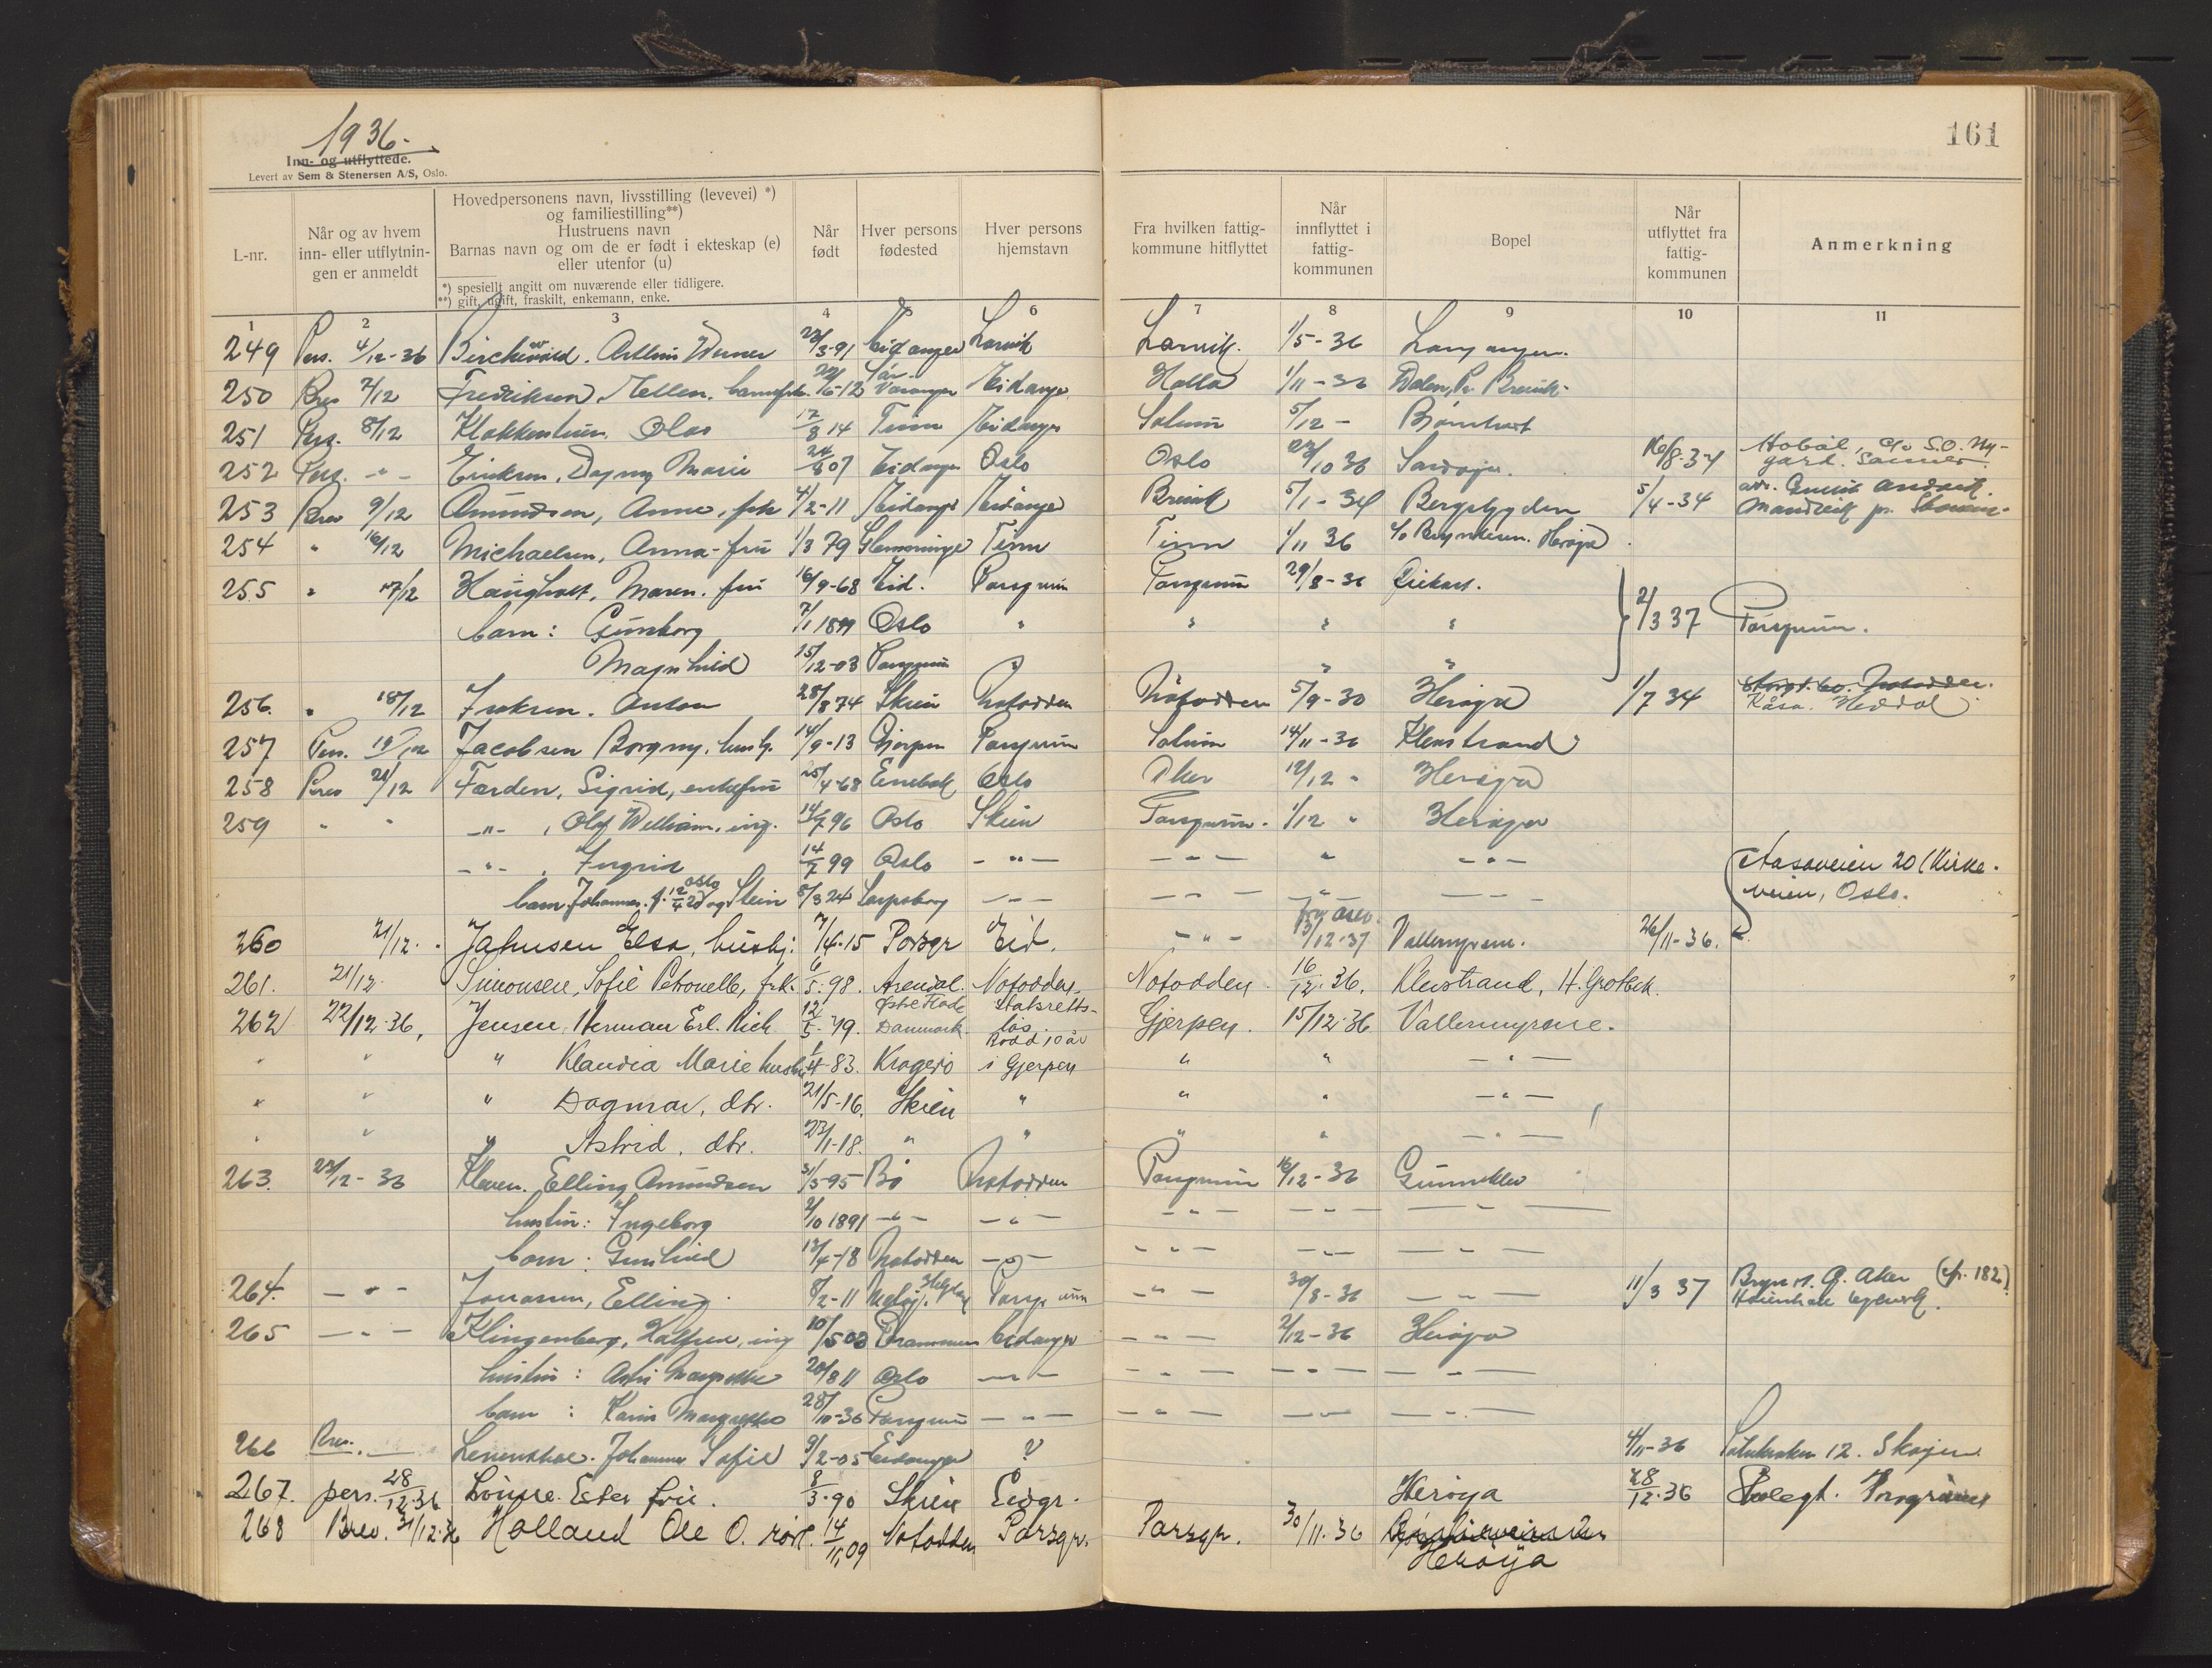 1936.
161
Inn- og utflyttede.
Levert av Sem & Stenersen A/S, Oslo.
L-nr.
Når og av hvem
inn- eller utflytnin-
gen er anmeldt
Hovedpersonens navn, livsstilling (levevei) *)
og familiestilling**)
Hustruens navn
Barnas navn og om de er født i ekteskap (e)
eller utenfor (u)
*) spesiellt angitt om nuværende eller tidligere.
**) gift, ugift, fraskilt, enkemann, enke.
Når
født
Hver persons
fødested
Hver persons
hjemstavn
Fra hvilken fattig-
kommune hitflyttet
Når
innflyttet i
fattig-
kommunen
Bopel
Når
utflyttet fra
fattig-
kommunen
Anmerkning
1 2 3 4 5 6 7 8 9 10 11
249 Pers. 4/12-36 Arthur Werner /3-91 Eidanger Larvik Larvik. 1/5-36 Langangen.
250 Brev 7/12 Fredriksen, Mellem. 22/6-12 Sør Varanger Eidanger Holla 1/11-36 Dalen, Pr. Brevik.
251 Pers. 8/12 Klokkestuen, Olav 17/8 14 Tinn Eidanger Solum 5/12 - Bjørntvet
252 Pers. -"- Eriksen, Dagny Marie 24/8 07 Eidanger Oslo Oslo 23/10 36 16/8-37 Hobøl, c/o S.O. Ny-
gård. Sauner.
253 Brev 9/12 Amundsen, Anne, frk 4/2-11 Eidanger Eidanger Brevik 5/1-34 Bergsbygden 5/4-34
254 " 16/12 Michaelsen, Anna - fru 1/3 79 Tinn Tinn 1/11 36 c/o Herøya
255 " 17/12 Haugholt, Maren. fru 16/9-68 Eid. Porsgrunn Porsgrunn 29/8-36
barn: Gunborg 7/1 1899 Oslo " " " " 2/3 37 Porsgrunn.
Magnhild 15/12-03 Porsgrunn " " "
256. " 18/12 Isaksen. Anton 28/8 74 Skien Notodden Notodden 5/9-30 Herøya 1/7 34 Notodden.
Heddal
257 Pers. 19/12 Jacobsen Borgny, hush. 14/9-13 Gjerpen Porsgrunn Solum 14/11-36 Klevstrand
258 Brev 21/12 Farden, Sigrid, enkefru 25/4-68 Enebak Oslo Aker 12/12 " Herøya
259 " " -"-, Olaf William, ing. 14/7 96 Oslo Skien Porsgrunn. 1/12 " Herøya
-"-, Ingrid 14/7 99 Oslo -"- -"- " -"- Aasaveien 20 (Kirke-
veien, Oslo.
barn Johannes. f. 12/4 20 Oslo og Stein 8/3 24 Sarpsborg -"- -"- " -"-
260 21/12. Jahnsen Elsa, hushj. 7/4-15 Porsgr Eid. -"- 13/12-37 Vallermyrene. 26/11-36.
261. 21/12. Simonsen, Sofie Petronelle, frk. 6/5. 98. Arendal. Notodden. Notodden 16/12. 36. Klevstrand, H. Grotbek.
262 22/12-36. Jensen, Herman Erl. Rich 12/5. 79. Danmark. Statsretts-
løs Bodd 10 år Gjerpen. 15/12-36 Vallermyrene.
" " " Klaudia Marie hustru 1/4-83. Kragerø i Gjerpen " " -"-
" " " Dagmar, dtr. 21/5-16. Skien " " " -"-
" " " Astrid, dtr. 23/1-18. " " " " -"-
263. 23/12-36 Kleven. Elling Amundsen 31/5-95 Bø Notodden Porsgrunn 16/12-36 Gunneklev
hustru: Ingeborg 2/10 1891 -"- -"- -"- -"- -"-
barn: Gunhild 12/4-18 Notodden -"- -"- -"- -"-
264. -"- Jonassen, Elling 8/2-11 Porsgrunn -"- 30/8-36 -"- 11/3 37 Bryn st. Ø. Aker (fr. 182)
265 -"- Klingenberg, Halfred, ing 10/5 03 Drammen Eidanger -"- 2/12-36 Herøya
hustru: Margrethe 20/8 11 Oslo -"- -"- -"- -"-
barn: Karin Margrethe 28/10-36 Porsgrunn -"- -"- -"- -"-
266 Brev. Johanne Sofie 9/2-05 Eidanger ? 4/11-36 12. Skøyen
267. pers. 28/12-36 Ester fru. 8/3-90 Skien Eidgr. Herøya 28/12-36 Porsgrunn
268 Brev. 31/12-36 Holland Ole O. 14/11,09 Notodden Porsgr. Porsgr. 30/11. 36
Herøya